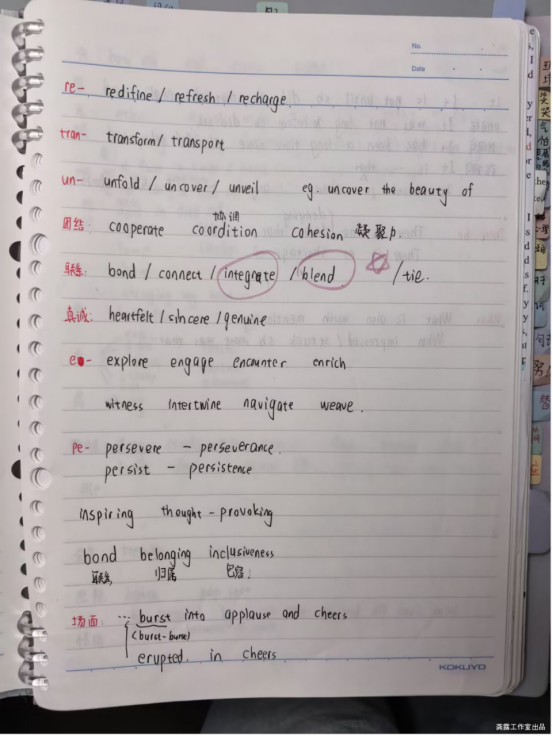 No.
Date
re- redifine / refresh / recharge
tran- transform / transport
un- unfold / uncover / unveil eg. uncover the beauty of
协调
团结: cooperate coordition cohesion 凝聚力.
联系: bond / connect / integrate / blend / tie.
真诚: heartfelt / sincere / genuine
e- explore engage encounter enrich
witness intertwine navigate weave.
pe- persevere - perseverance.
persist - persistence
inspiring thought-provoking
bond belonging inclusiveness
联系 归属 包容
场面: ... burst into applause and cheers
(burst-burst)
erupted in cheers
KOKUYO
龚露工作室出品